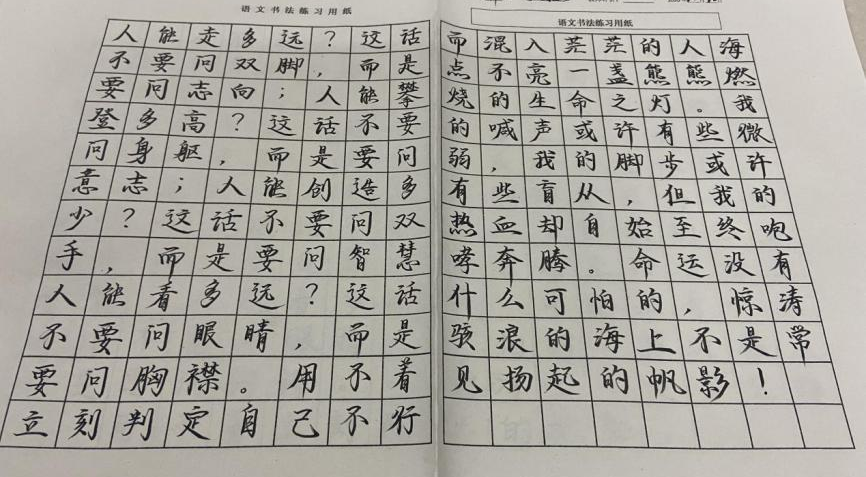 语文书法练习用纸
人能走多远？这话
不要问双脚，而是
要问志向；人能攀
登多高？这话不要
问身躯，而是要问
意志；人能创造多
少？这话不要问双
手，而是要问智慧
人能看多远？这话
不要问眼睛，而是
要问胸襟。用不着
立刻判定自己不行
语文书法练习用纸
而混入茫茫的人海
点不亮一盏熊熊燃
烧的生命之灯。我
的喊声或许有些微
弱，我的脚步或许
有些盲从，但我的
热血却自始至终咆
哮奔腾。命运没有
什么可怕的，惊涛
骇浪的海上不是常
见扬起的帆影！